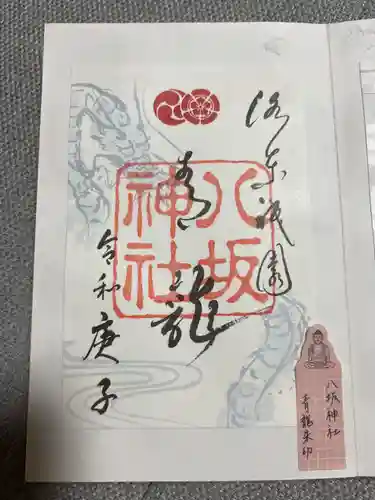 洛東祇園
八坂神社
青龍
令和庚子
八坂神社
青龍朱印